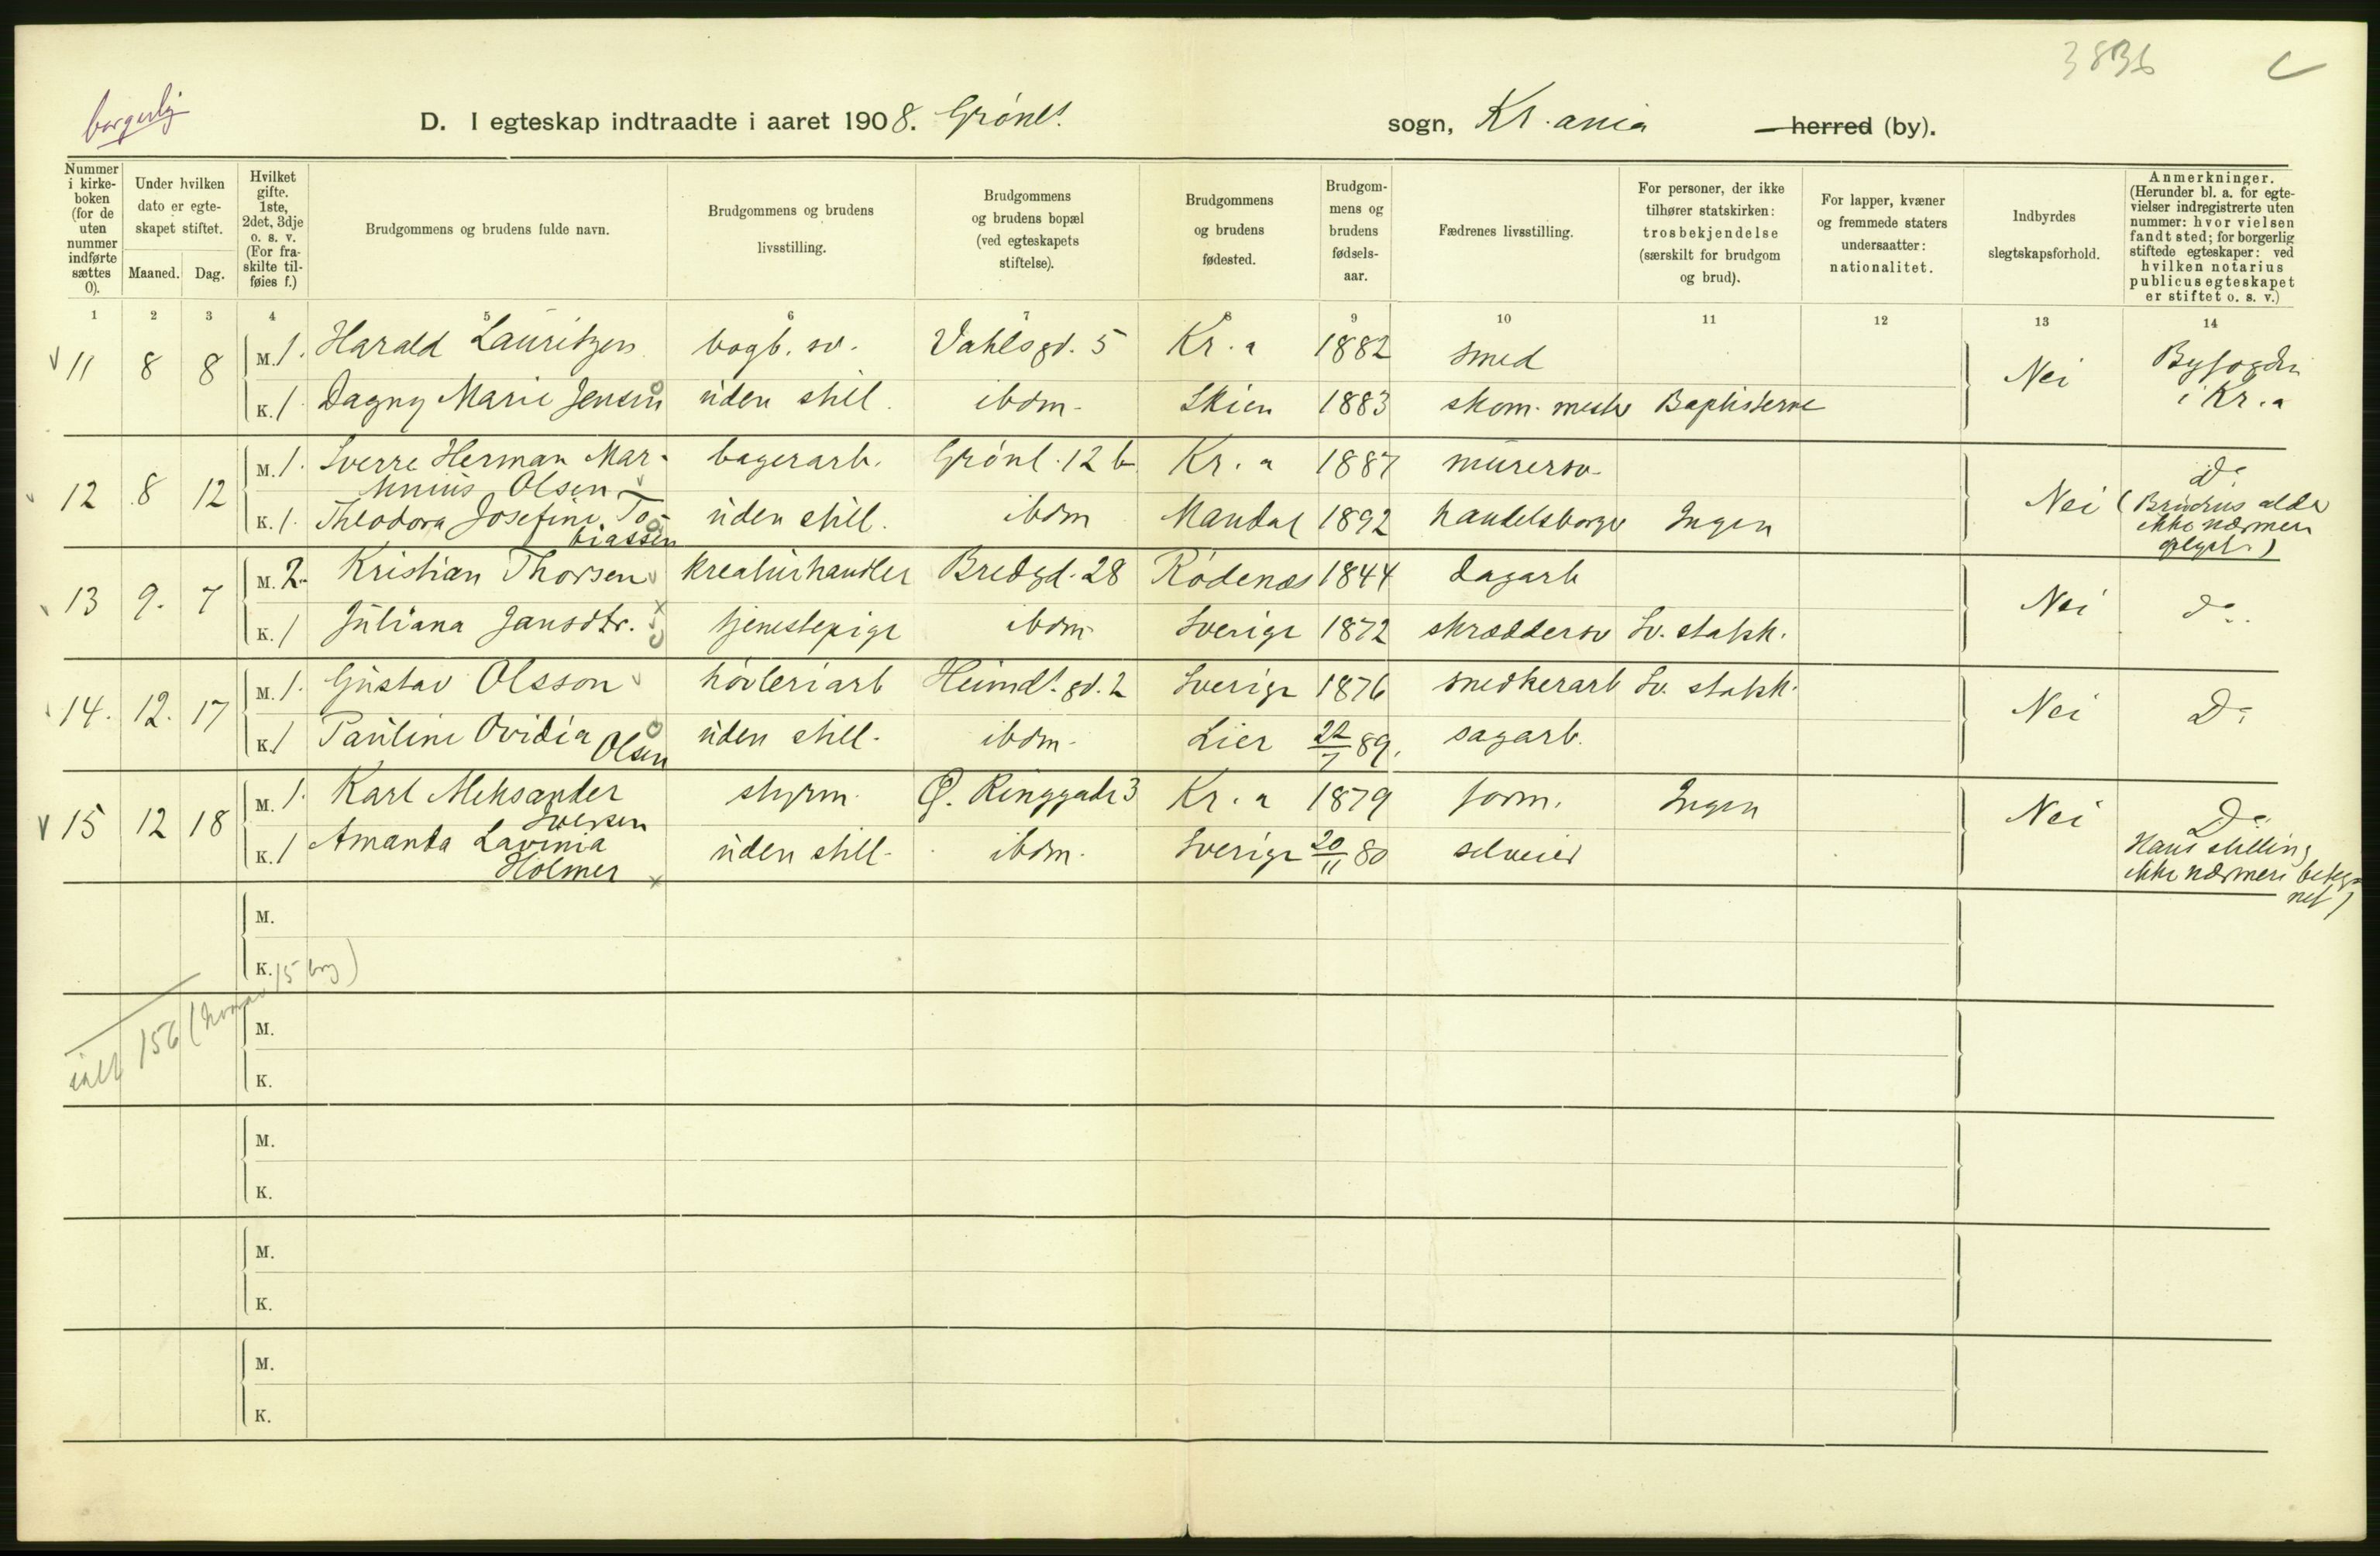 3836
borgerlig
D. I egteskap indtraadte i aaret 1908. Grønl. sogn, Kr.ania herred (by).
Nummer i kirke-boken (for de uten nummer indførte sættes 0).
Under hvilken dato er egte-skapet stiftet.
Maaned. Dag.
Hvilket gifte. 1ste, 2det, 3dje o. s. v. (For fra-skilte til-føies f.)
Brudgommens og brudens fulde navn.
Brudgommens og brudens livsstilling.
Brudgommens og brudens bopæl (ved egteskapets stiftelse).
Brudgommens og brudens fødested.
Brudgom-mens og brudens fødsels-aar.
Fædrenes livsstilling.
For personer, der ikke tilhører statskirken: trosbekjendelse (særskilt for brudgom og brud).
For lapper, kvæner og fremmede staters undersaatter: nationalitet.
Indbyrdes slegtskapsforhold.
Anmerkninger. (Herunder bl. a. for egte-vielser indregistrerte uten nummer: hvor vielsen fandt sted; for borgerlig stiftede egteskaper: ved hvilken notarius publicus egteskapet er stiftet o. s. v.)
1 2 3 4 5 6 7 8 9 10 11 12 13 14
11 8 8 M. 1. Harald Lauritzen bogb. sv. Vahlsgd. 5 Kr.a 1882 smed Nei Byfogden i Kr.a
K. 1 Dagny Marie Jensen uden still. ibdm. Skien 1883 skom. mester Baptisterne
12 8 12 M. 1. Sverre Herman Mar-
tinius Olsen bagerarb. Grønl. 12 b Kr.a 1887 murersv. Nei Do
K. 1. Theodora Josefine To-
biassen uden still. ibdm Mandal 1892 handelsborger Ingen (Brudens alder ikke nærmere opgit.)
13 9. 7 M. 2. Kristian Thorsen kreaturhandler Bredgd. 28 Rødenæs 1844 dagarb Nei do.
K. 1 Juliana Jansdtr. tjenestepige ibdm Sverige 1872 skræddersv Sv. statsk.
14. 12. 17 M. 1. Gustav Olsson høvleriarb Heimdl.gd. 2 Sverige 1876 snedkerarb Sv. statsk. Nei Do
K. 1 Pauline Ovidia Olsen uden still. ibdm. Lier 22/7 89. sagarb.
15 12 18 M. 1. Karl Aleksander
Iversen styrm. Ø. Ringgade 3 Kr.a 1879 form. Ingen Nei Do
K. 1 Amanda Lavinia
Holmer uden still. ibdm. Sverige 20/11 80 selveier Hans stilling ikke nærmere betegnet)
M.
K.
ialt 156 (hvorav 15 borg)
M.
K.
M.
K.
M.
K.
M.
K.